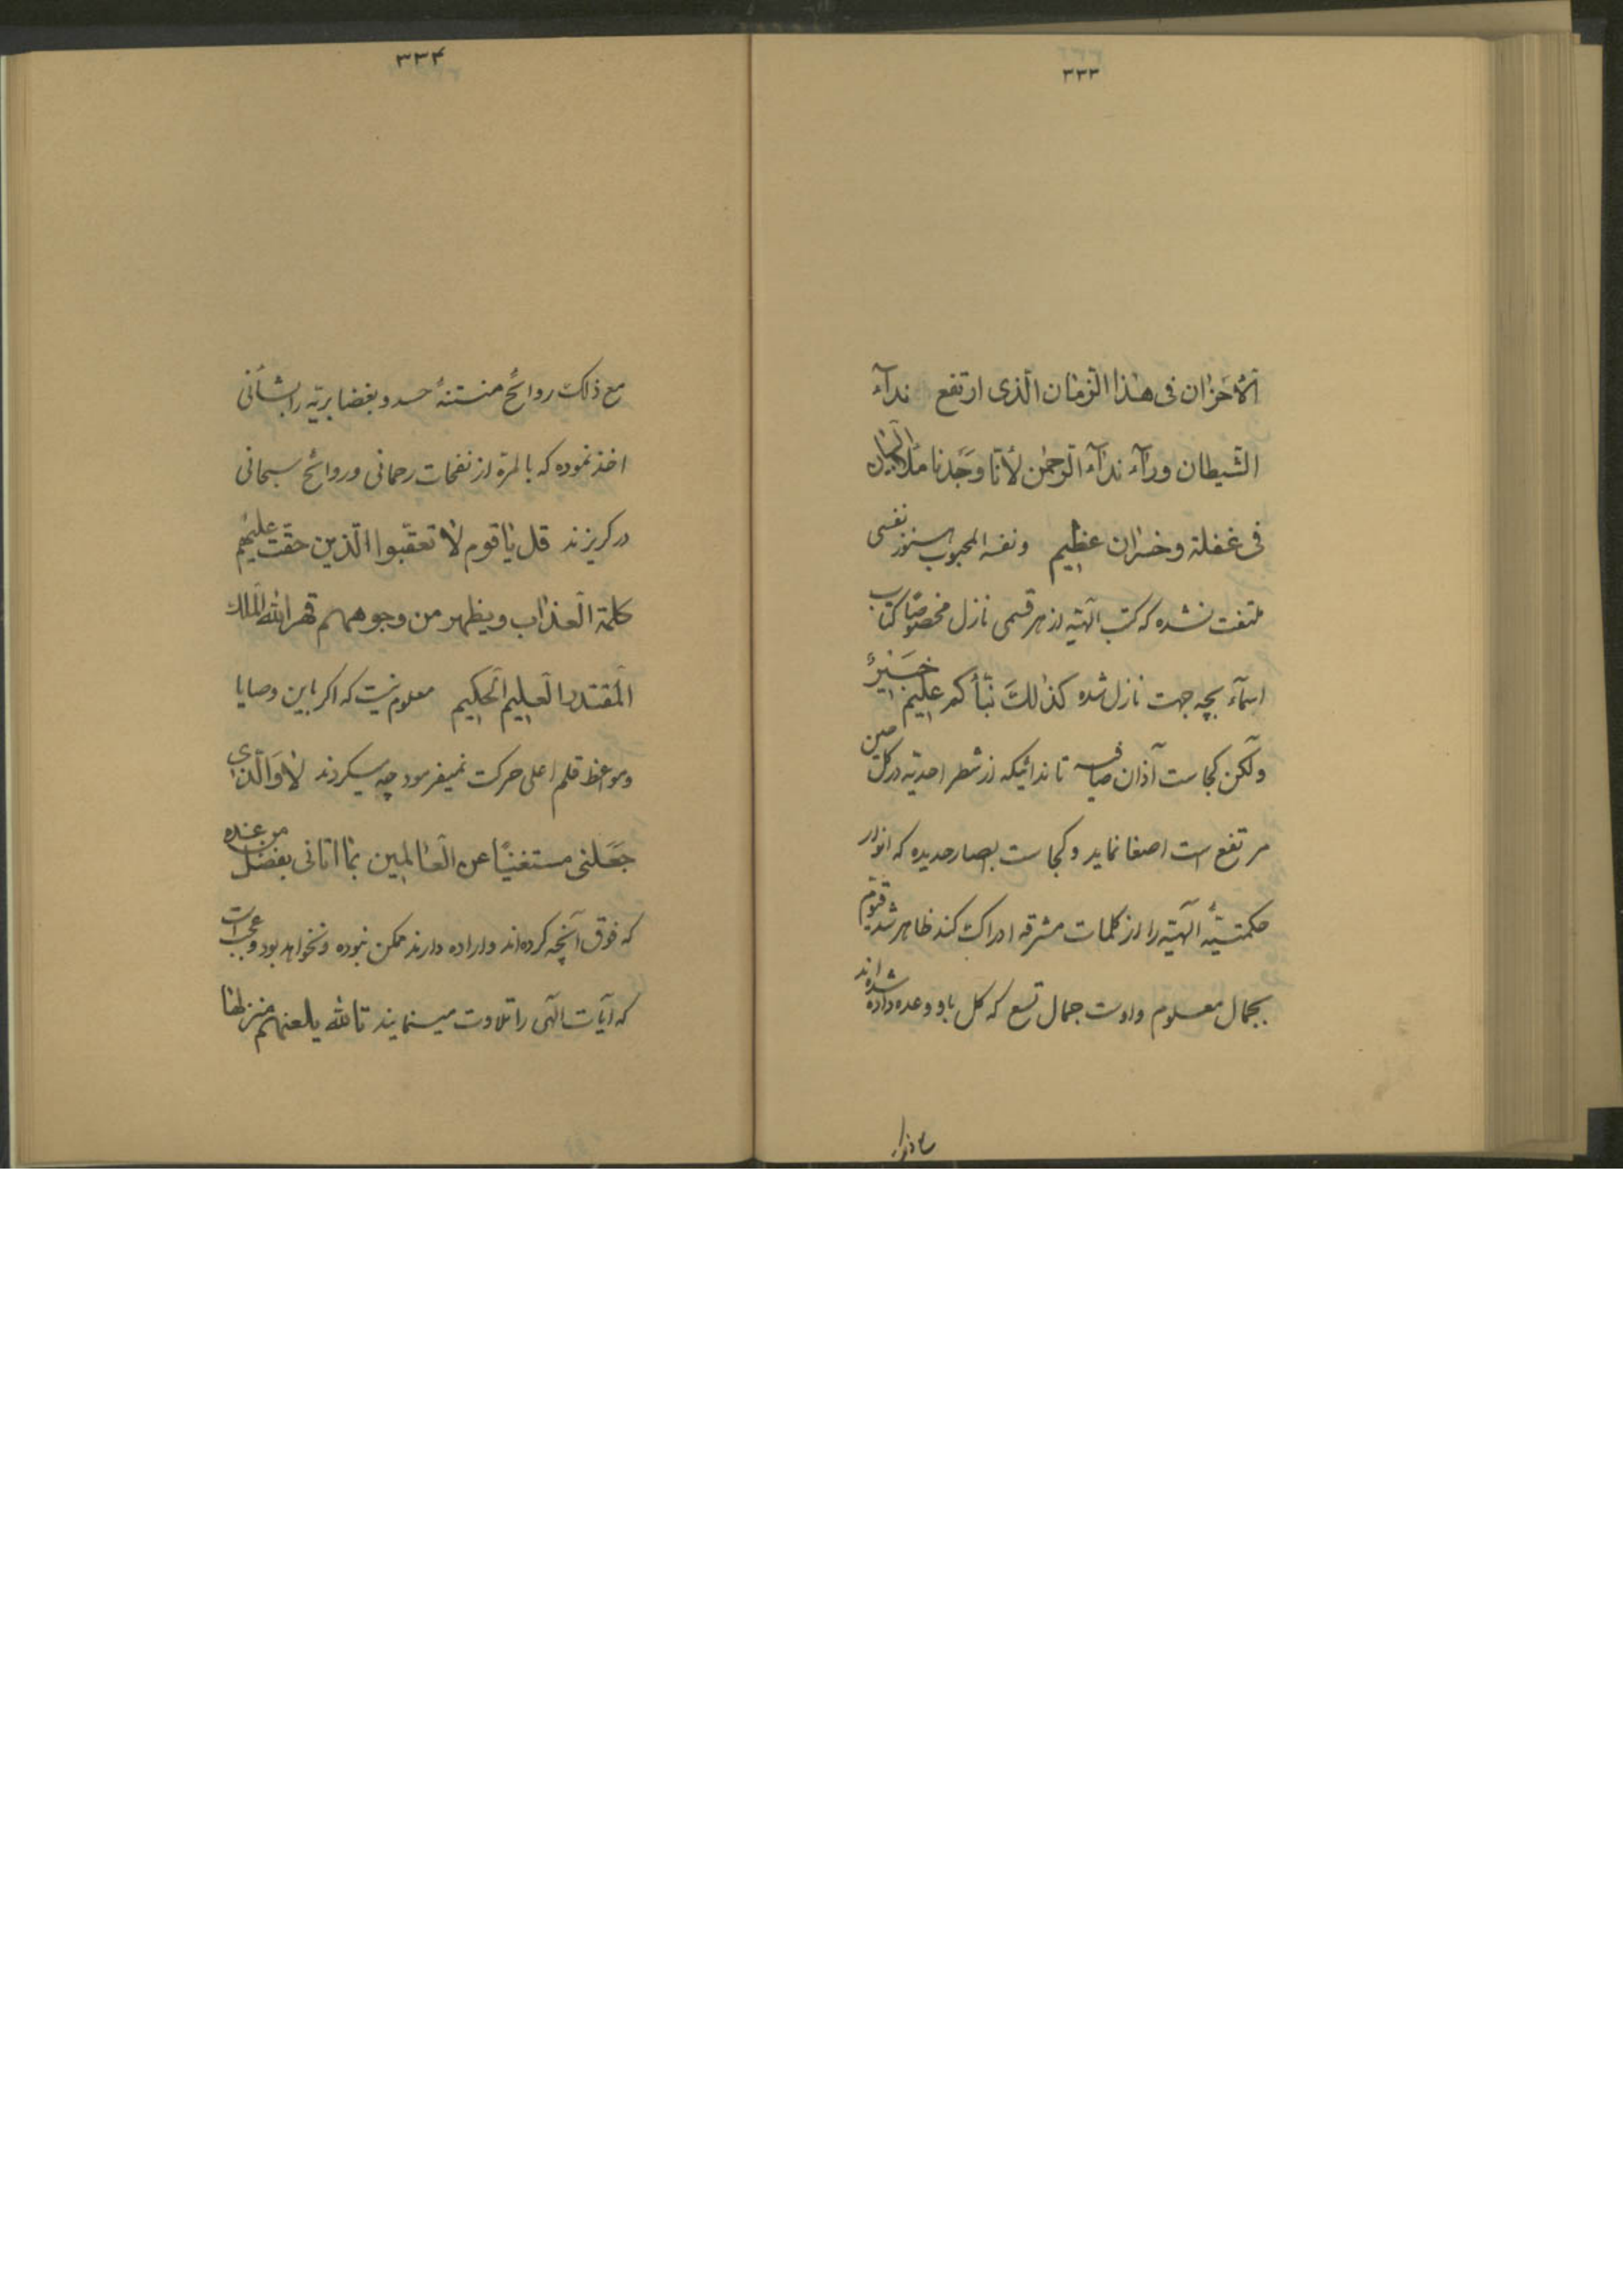 ٣٣٣
الأحزان فی هذا الزمان الذی ارتفع ندآء
الشیطان ورآء ندآء الرحمن لأنا وجدنا ملأ البیان
فی غفلة وخسران عظیم ونفسه المحبوب هنوز نفسی
ملتفت نشده که کتب الهیه از هر قسمی نازل مخصوصًا کتاب
اسمآء بچه جهت نازل شده کذلك نبأکم علیم خبیر
ولکن کجاست آذان صافیه تا ندائیکه از شطر احدیه در کل حین
مرتفع است اصغا نماید و کجاست ابصار حدیده که انوار
حکمتیهٔ الهیه را از کلمات مشرقه ادراک کند ظاهر شد قیوم
بجمال معلوم و اوست جمال تسع که کل باو وعده داده شده‌اند
٣٣۴
مع ذلک روائح منتنهٔ حسد و بغضا بریه را بشأنی
اخذ نموده که بالمره از نفحات رحمانی و روائح سبحانی
در کریزند قل یا قوم لا تعقبوا الذین حقت علیهم
کلمة العذاب ویظهر من وجوههم قهر الله الملك
المقتدر العلیم الحکیم معلوم نیست که اکر باین وصایا
ومواعظ قلم اعلی حرکت نمیفرمود چه میکردند لا والذی
جعلنی مستغنیًا عن العالمین بما اتانی بفضل من عنده
که فوق آنچه کرده‌اند و اراده دارند ممکن نبوده و نخواهد بود و عجب است
که آیات الهی را تلاوت مینمایند تالله یلعنهم منزلها